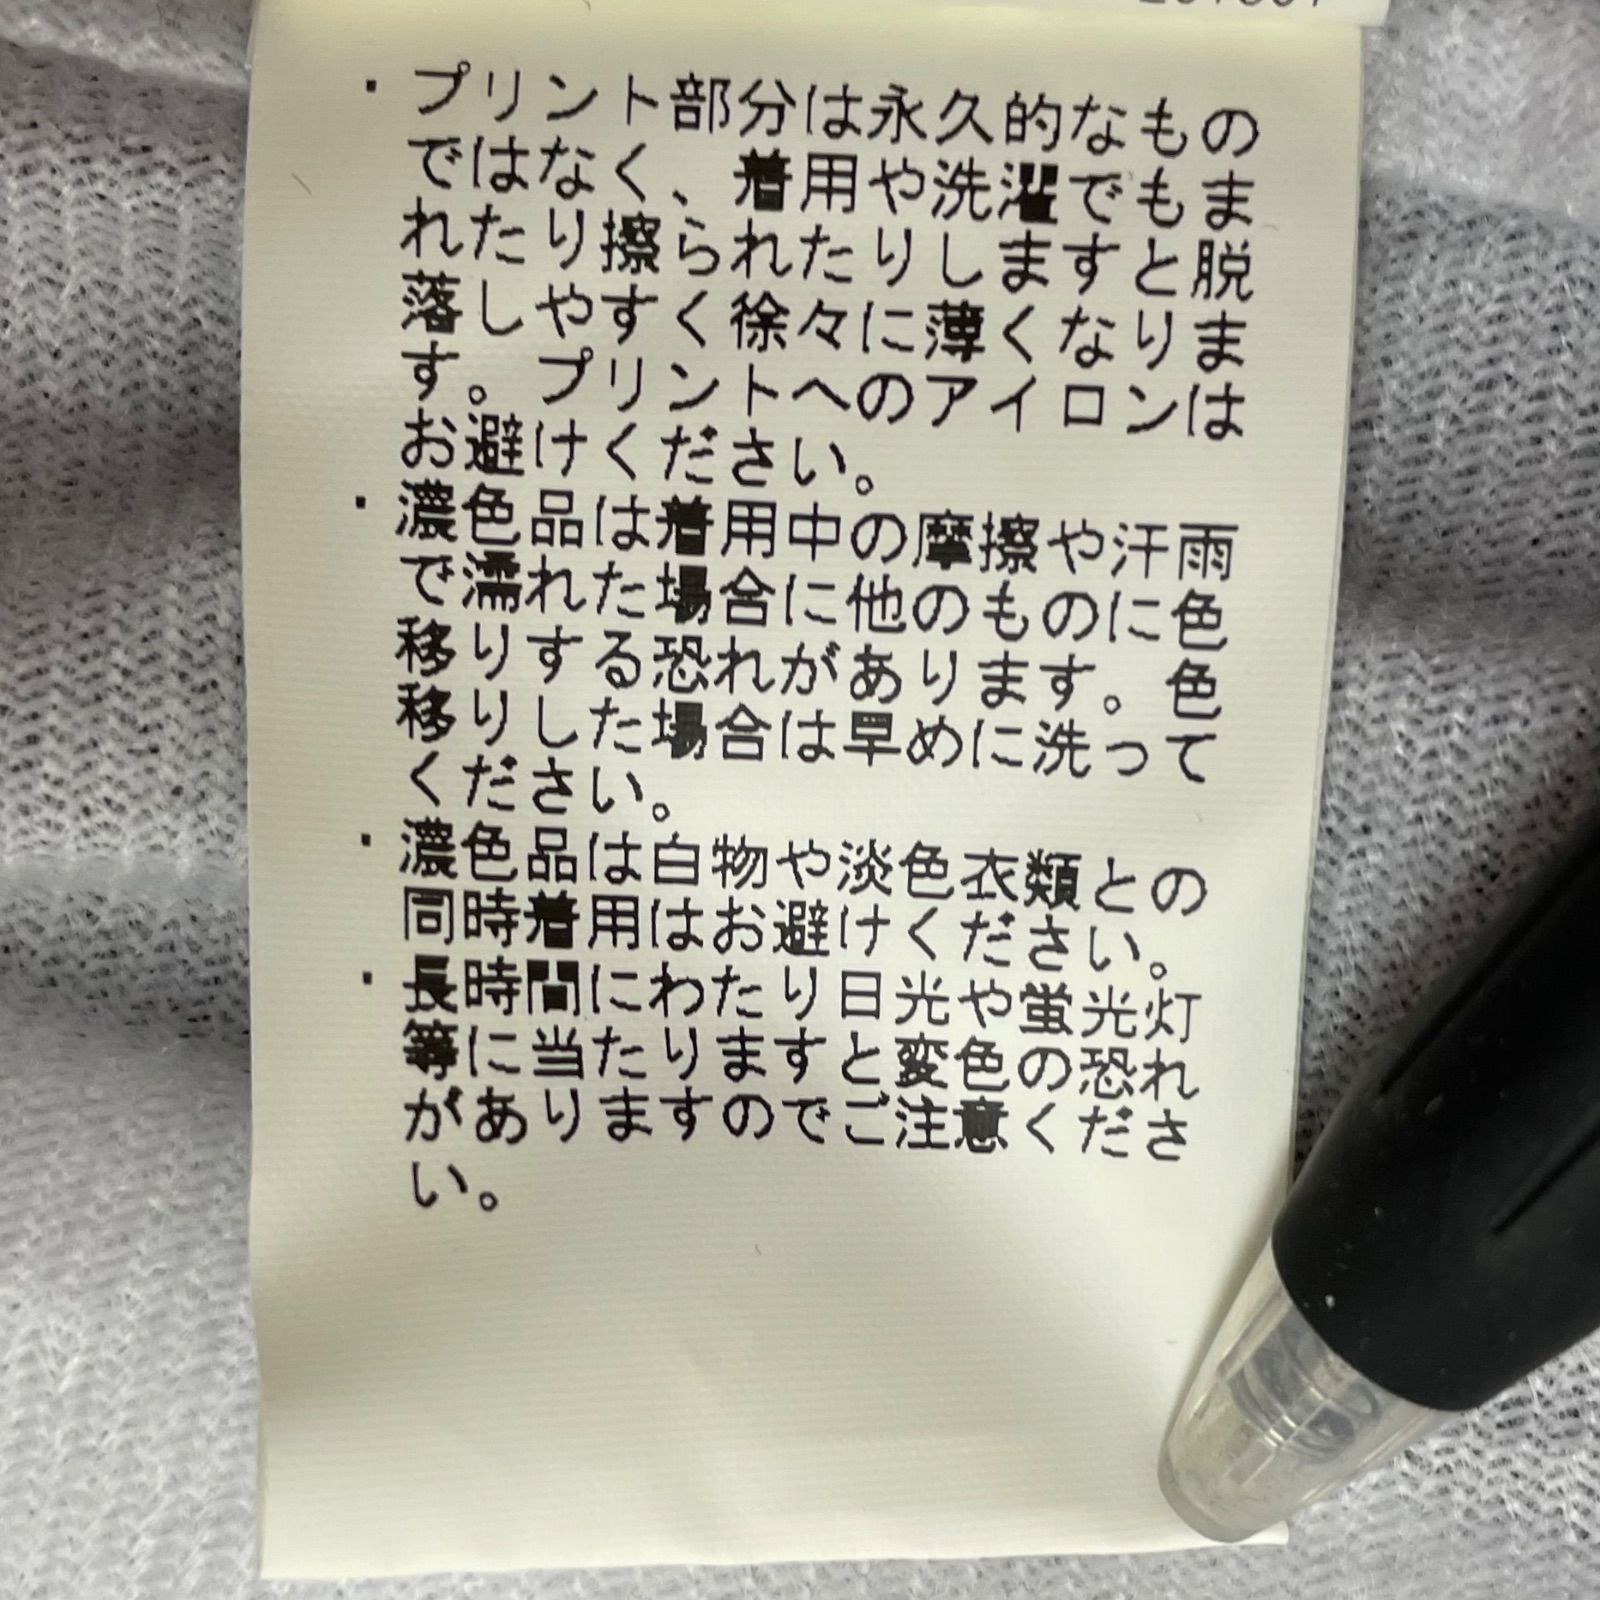 ・プリント部分は永久的なもの
ではなく、着用や洗濯でもま
れたり擦られたりしますと脱
落しやすく徐々に薄くなりま
す。プリントへのアイロンは
お避けください。
・濃色品は着用中の摩擦や汗雨
で濡れた場合に他のものに色
移りする恐れがあります。色
移りした場合は早めに洗って
ください。
・濃色品は白物や淡色衣類との
同時着用はお避けください。
・長時間にわたり日光や蛍光灯
等に当たりますと変色の恐れ
がありますのでご注意くださ
い。